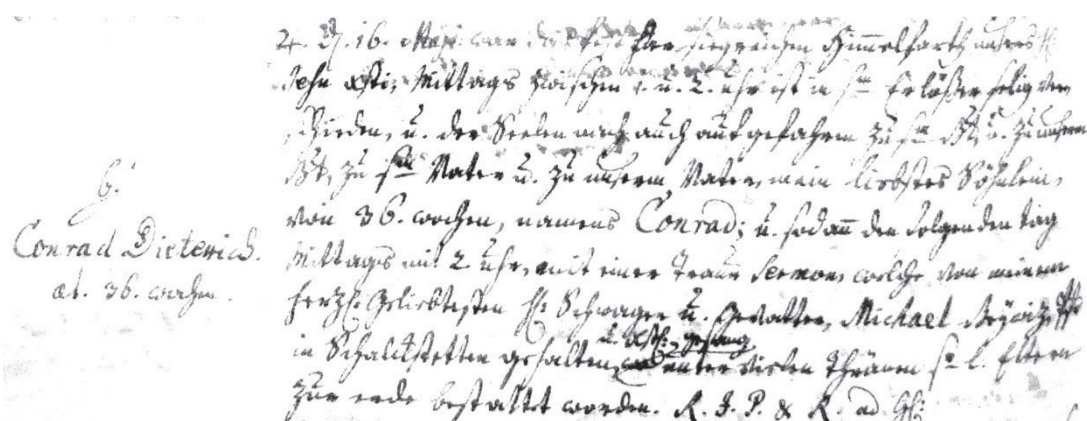 6.
Conrad Dieterich.
æt. 36. wochen.
16. Maji. war das fest der siegreichen Himmelfarth unsers H.
Jesu Xsti, Mittags zwischen 1. u. 2. uhr ist in sm Erlößer selig ver
schieden, u. der Seelen nach auch aufgefahren zu sm Gtt, u. zu unserm
Gtt, zu sm Vater u. zu unserm Vater, mein liebstes Söhnlein,
von 36. wochen, namens Conrad; u. sodann den folgenden tag
Mittags um 2. uhr, mit einer Traur Sermon, welche von meinem
herzl. geliebtesten H: Schwager u. Gevatter, Michael
in Schalkstetten gehalten, u. gesang unter vielen Thränen sr l. Eltern
zur erde bestattet worden. R. I. P. & R. ad